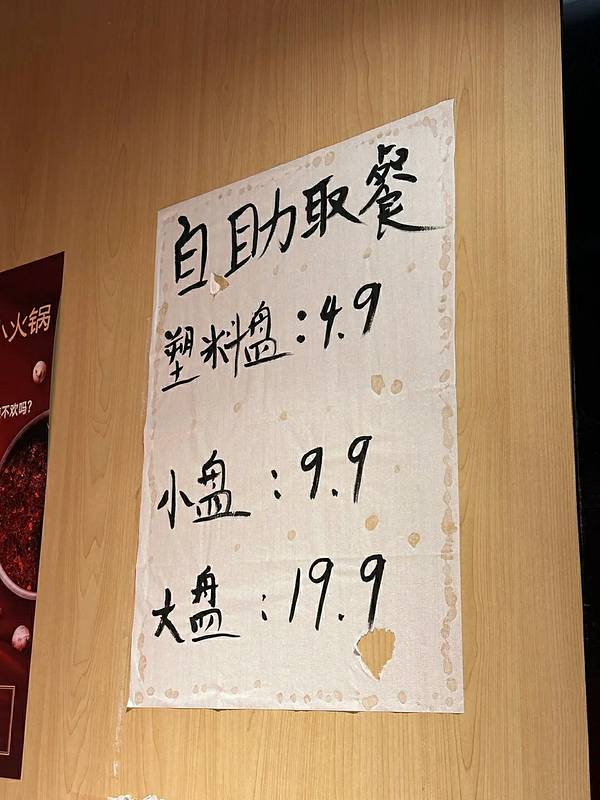 自助取餐
塑料盘:4.9
小盘:9.9
大盘:19.9
火锅
不欢吗?